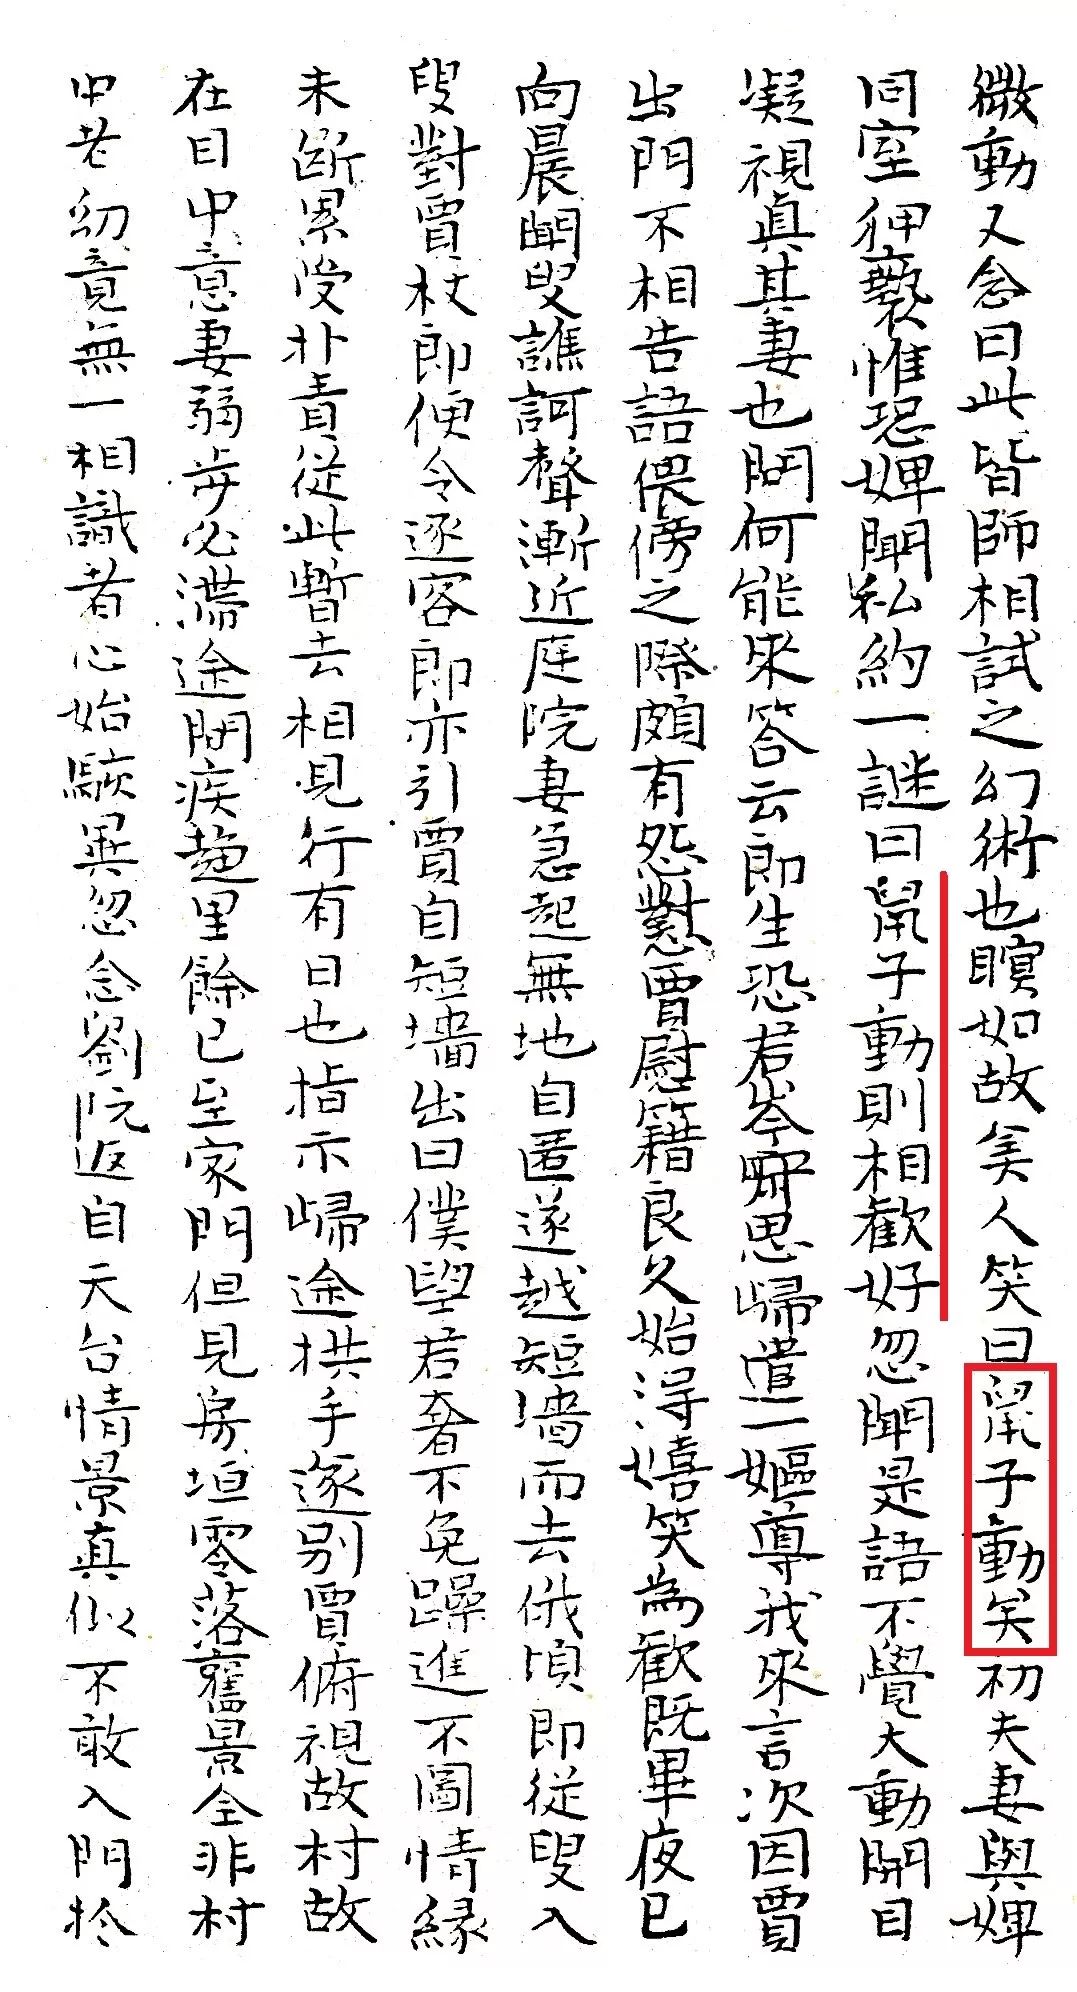 微動又念曰此皆師相試之幻術也瞑如故美人笑曰鼠子動矣初夫妻與婢
同室狎褻惟恐婢聞私約一謎曰鼠子動則相歡好忽聞是語不覺大動開目
凝視真其妻也問何能來答云郎生恐君岑寂思歸遣一嫗導我來言次因賈
出門不相告語偎傍之際頗有怨懟賈慰籍良久始得嬉笑為歡既畢夜已
向晨聞叟譙訶聲漸近庭院妻急起無地自匿遂越短墻而去俄頃郎從叟入
叟對賈杖郎便令逐客郎亦引賈自短墻出曰僕望君奢不免躁進不圖情緣
未斷累受扑責從此暫去相見行有日也指示歸途拱手遂別賈俯視故村故
在目中意妻弱步必滯途間疾趨里餘已至家門但見房垣零落舊景全非村
中老幼竟無一相識者心始駭異忽念劉阮返自天台情景真似不敢入門於